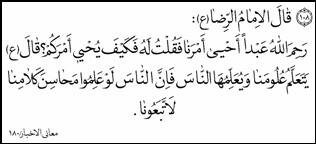 ١٠٨ قالَ الاِمامُ الرِّضا(ع):
رَحِمَ اللهُ عَبْداً أَحْيىٰ أَمْرَنا فَقُلْتُ لَهُ فَكَيْفَ يُحْيي أَمْرَكُمْ؟ قالَ(ع)
يَتَعَلَّمُ عُلُومَنا وَيُعَلِّمُهَا النّاسَ فَاِنَّ النّاسَ لَوْ عَلِمُوا مَحاسِنَ كَلامِنا
لَاتَّبَعُونا.
معانى الاخبار/١٨٠